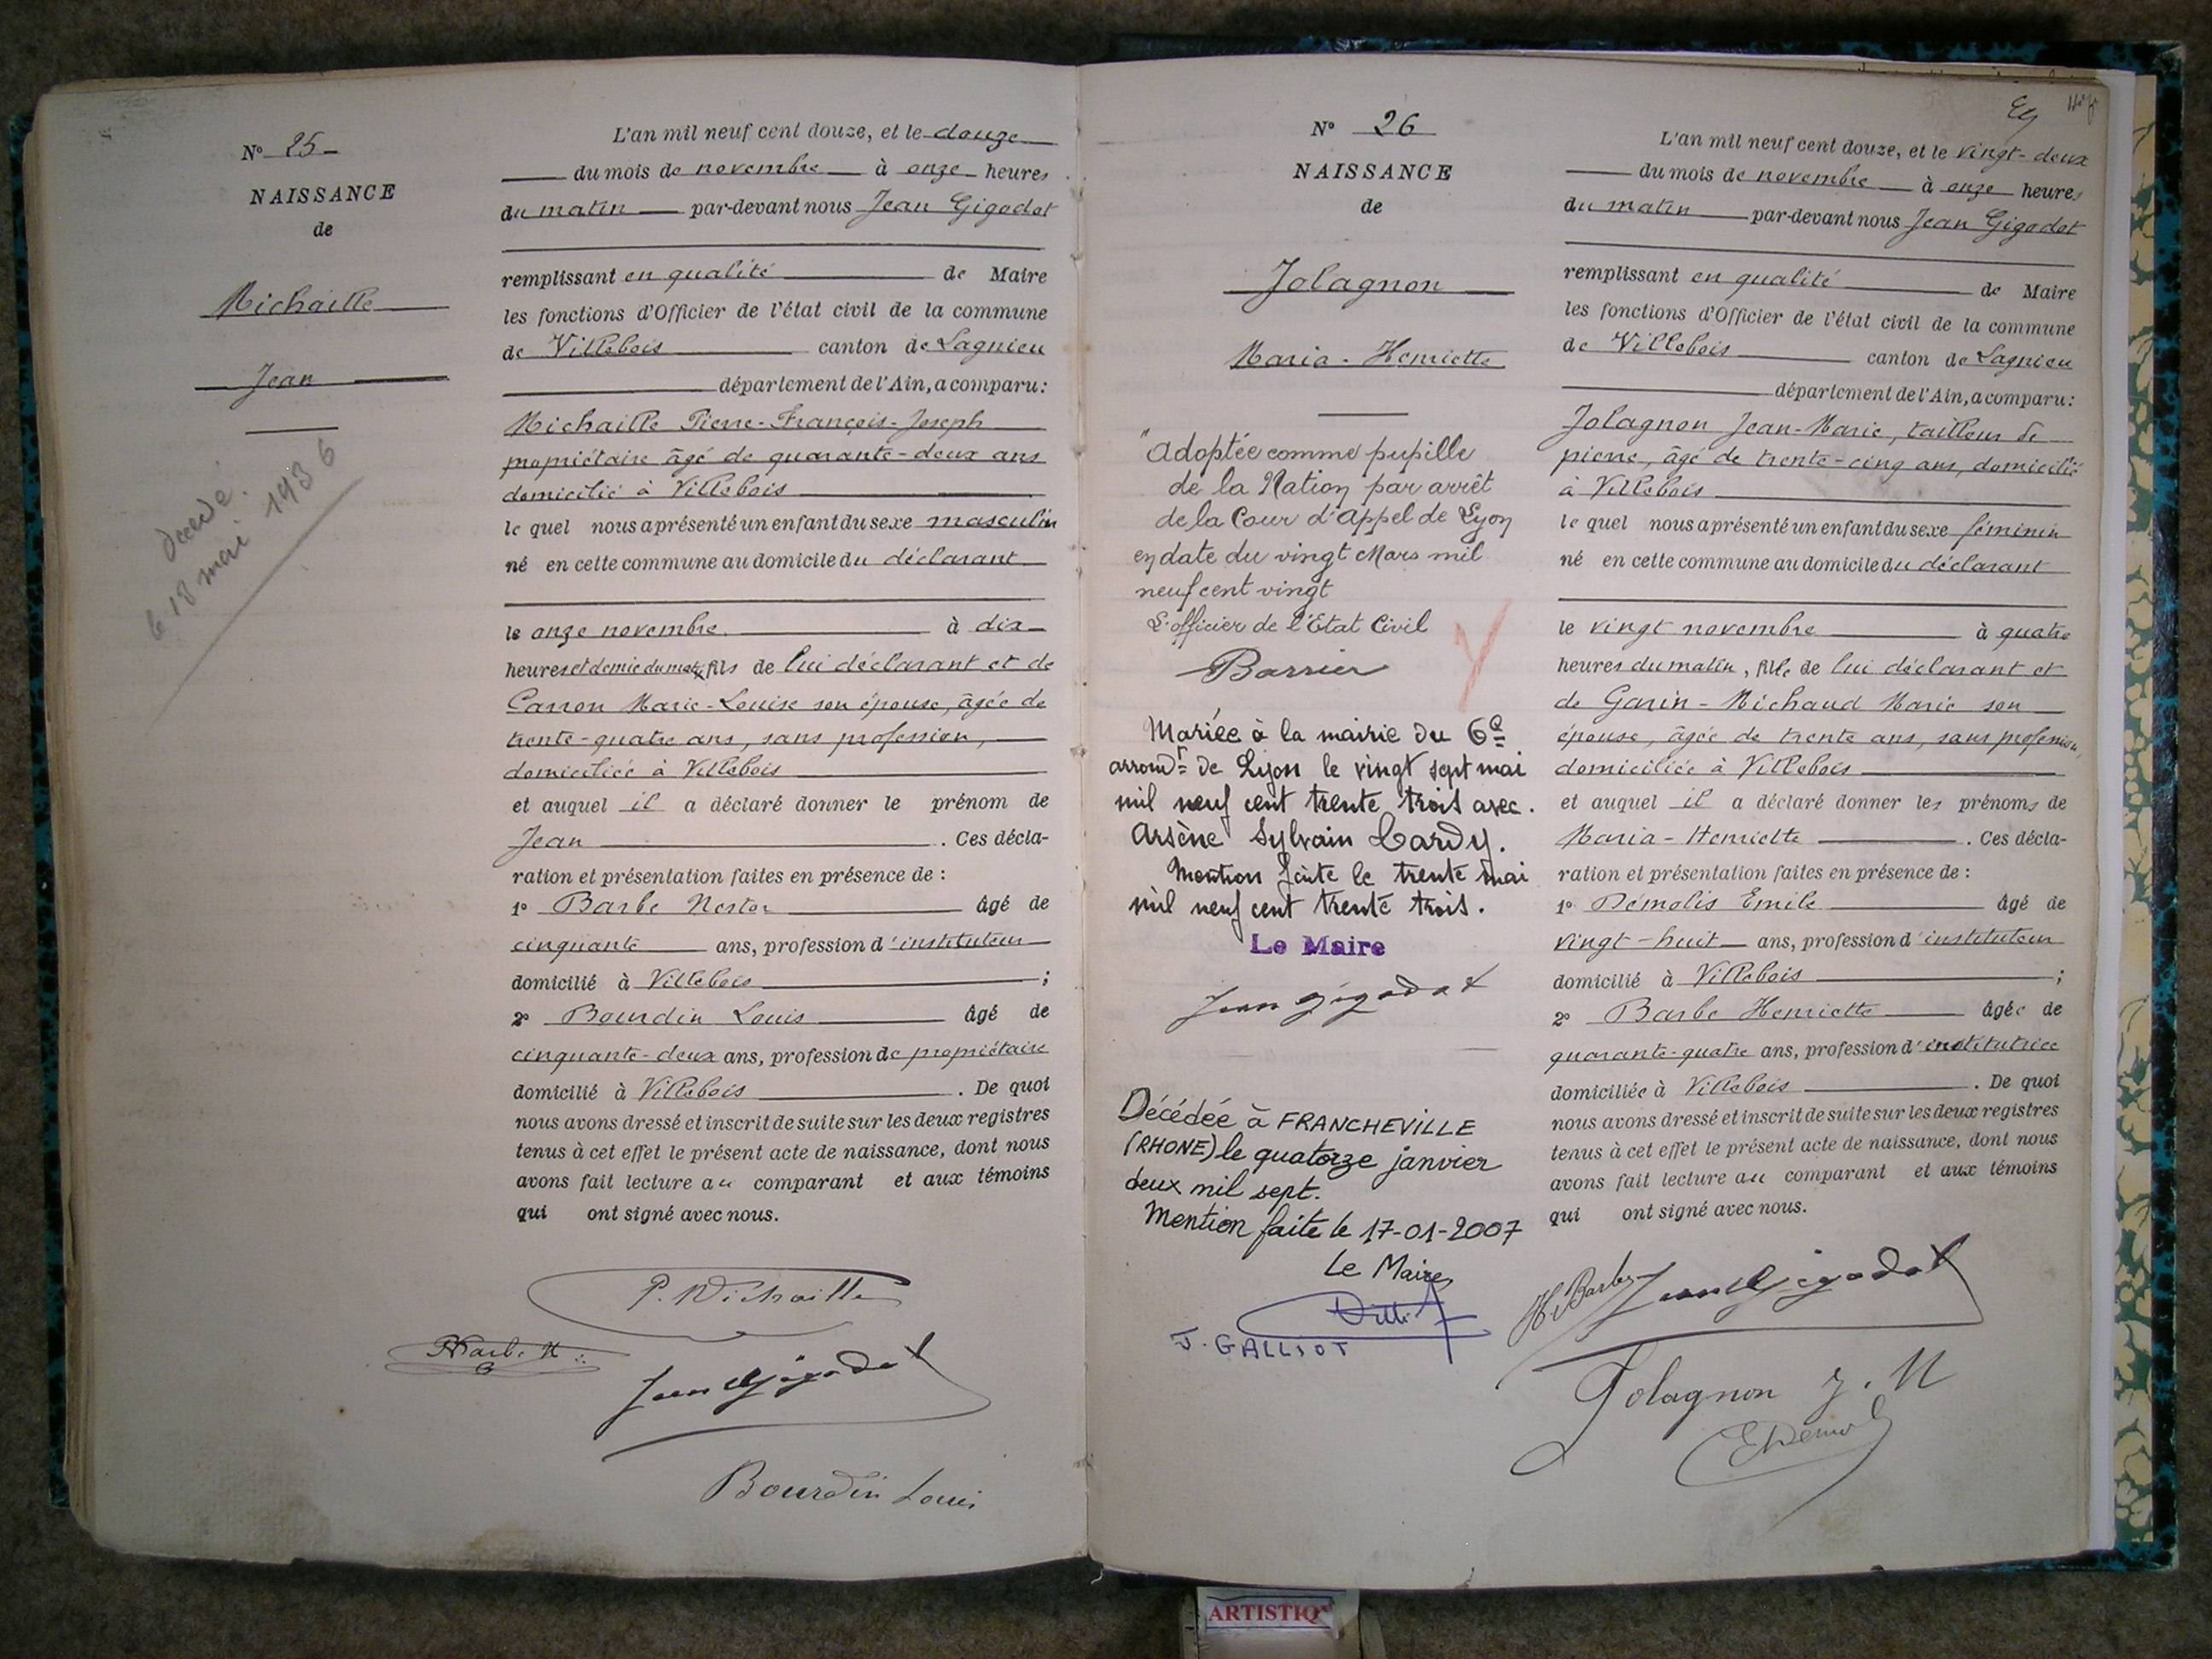 N° 25
NAISSANCE
de
Michaille
Jean
décédé
le 18 mai 1936
L'an mil neuf cent douze, et le douze
du mois de novembre à onze heures
du matin par-devant nous Jean Gigodot
remplissant en qualité de Maire
les fonctions d'Officier de l'état civil de la commune
de Villebois canton de Lagnieu
département de l'Ain, a comparu:
Michaille Pierre-François-Joseph
propriétaire âgé de quarante-deux ans
domicilié à Villebois
le quel nous a présenté un enfant du sexe masculin
né en cette commune au domicile du déclarant
le onze novembre à dix
heures et demie du matin fils de lui déclarant et de
Carron Marie-Louise son épouse, âgée de
trente-quatre ans, sans profession,
domiciliée à Villebois
et auquel il a déclaré donner le prénom de
Jean . Ces décla-
ration et présentation faites en présence de :
1° Barbe Nestor âgé de
cinquante ans, profession d'instituteur
domicilié à Villebois ;
2° Bourdin Louis âgé de
cinquante-deux ans, profession de propriétaire
domicilié à Villebois . De quoi
nous avons dressé et inscrit de suite sur les deux registres
tenus à cet effet le présent acte de naissance, dont nous
avons fait lecture au comparant et aux témoins
qui ont signé avec nous.
P. Michaille
Barbe N
Jean Gigodot
Bourdin Louis
N° 26
NAISSANCE
de
Jolagnon
Maria-Henriette
"Adoptée comme pupille
de la Nation par arrêt
de la Cour d'Appel de Lyon
en date du vingt Mars mil
neuf cent vingt
L'officier de l'Etat Civil
Barrier
Mariée à la mairie du 6e
arrondt de Lyon le vingt sept mai
mil neuf cent trente trois avec
Arsène Sylvain Lardy.
Mention faite le trente mai
mil neuf cent trente trois.
Le Maire
Jean Gigodot
Décédée à FRANCHEVILLE
(RHONE) le quatorze janvier
deux mil sept.
Mention faite le 17-01-2007
Le Maire
J. GALLIOT
L'an mil neuf cent douze, et le vingt-deux
du mois de novembre à onze heures
du matin par-devant nous Jean Gigodot
remplissant en qualité de Maire
les fonctions d'Officier de l'état civil de la commune
de Villebois canton de Lagnieu
département de l'Ain, a comparu:
Jolagnon Jean-Marie, tailleur de
pierre, âgé de trente-cinq ans, domicilié
à Villebois
le quel nous a présenté un enfant du sexe féminin
né en cette commune au domicile du déclarant
le vingt novembre à quatre
heures du matin, fille de lui déclarant et
de Garin-Michaud Marie son
épouse, âgée de trente ans, sans profession,
domiciliée à Villebois
et auquel il a déclaré donner les prénoms de
Maria-Henriette . Ces décla-
ration et présentation faites en présence de :
1° Démolis Emile âgé de
vingt-huit ans, profession d'instituteur
domicilié à Villebois ;
2° Barbe Henriette âgée de
quarante-quatre ans, profession d'institutrice
domiciliée à Villebois . De quoi
nous avons dressé et inscrit de suite sur les deux registres
tenus à cet effet le présent acte de naissance, dont nous
avons fait lecture au comparant et aux témoins
qui ont signé avec nous.
H. Barbe Jean Gigodot
Jolagnon J. M
ARTISTIQ